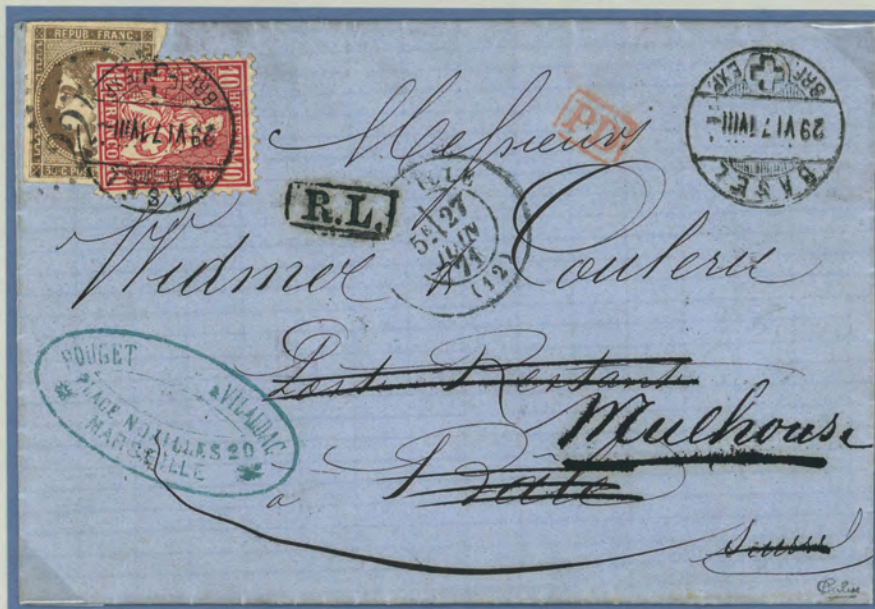 REPUB · FRANC ·
10 FRANCO 10
BASEL
29 VI 71 VIII
BRF. EXP.
BASEL
29 VI 71 VIII
BRF. EXP.
P.D.
Messieurs
R.L.
5E
27
JUIN
71
(12)
Widmer & Couleru
POUGET & VILALDAC
PLACE NOAILLES 20
MARSEILLE
Poste Restante
Mulhouse
à Bâle
Suisse